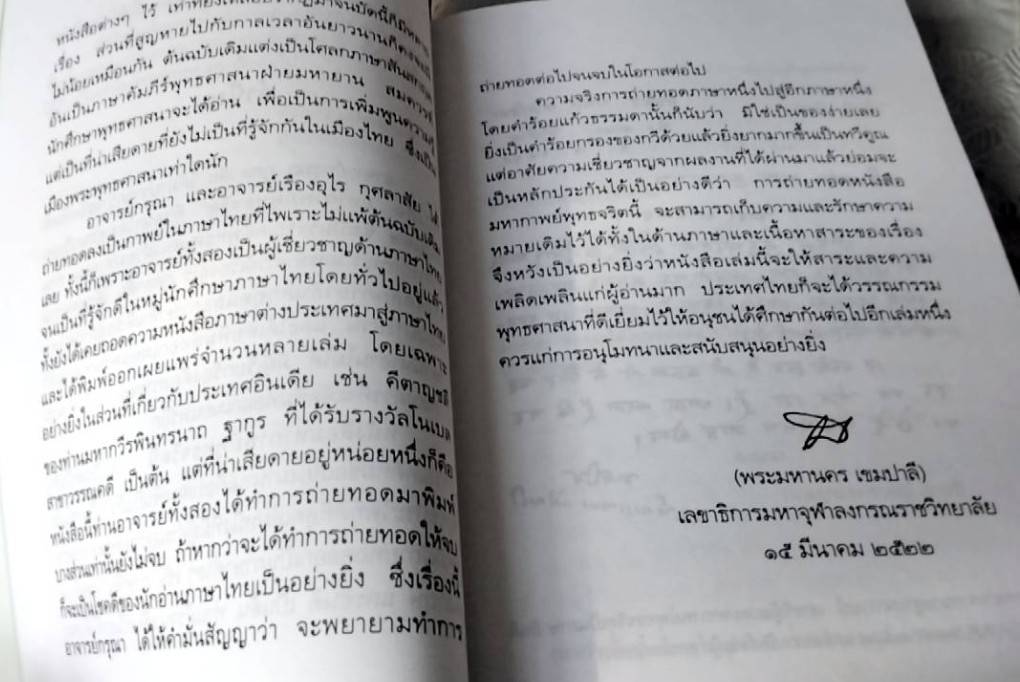 หนังสือต่างๆ ไว้ เท่าที่ยังเหลือปรากฏมาจนบัดนี้ก็มีหลาย
เรื่อง ส่วนที่สูญหายไปกับกาลเวลาอันยาวนานก็คงจะมี
ไม่น้อยเหมือนกัน ต้นฉบับเดิมแต่งเป็นโศลกภาษาสันสกฤต
อันเป็นภาษาคัมภีร์พุทธศาสนาฝ่ายมหายาน สมควรที่
นักศึกษาพุทธศาสนาจะได้อ่าน เพื่อเป็นการเพิ่มพูนความรู้
แต่เป็นที่น่าเสียดายที่ยังไม่เป็นที่รู้จักกันในเมืองไทย ซึ่งเป็น
เมืองพระพุทธศาสนาเท่าใดนัก
อาจารย์กรุณา และอาจารย์เรืองอุไร กุศลาสัย ได้
ถ่ายทอดลงเป็นกาพย์ในภาษาไทยที่ไพเราะไม่แพ้ต้นฉบับเดิม
เลย ทั้งนี้ก็เพราะอาจารย์ทั้งสองเป็นผู้เชี่ยวชาญด้านภาษาไทย
จนเป็นที่รู้จักดีในหมู่นักศึกษาภาษาไทยโดยทั่วไปอยู่แล้ว
ทั้งยังได้เคยถอดความหนังสือภาษาต่างประเทศมาสู่ภาษาไทย
และได้พิมพ์ออกเผยแพร่จำนวนหลายเล่ม โดยเฉพาะ
อย่างยิ่งในส่วนที่เกี่ยวกับประเทศอินเดีย เช่น คีตาญชลี
ของท่านมหากวีรพินทรนาถ ฐากูร ที่ได้รับรางวัลโนเบล
สาขาวรรณคดี เป็นต้น แต่ที่น่าเสียดายอยู่หน่อยหนึ่งก็คือ
หนังสือนี้ท่านอาจารย์ทั้งสองได้ทำการถ่ายทอดมาพิมพ์
บางส่วนเท่านั้นยังไม่จบ ถ้าหากว่าจะได้ทำการถ่ายทอดให้จบ
ก็จะเป็นโชคดีของนักอ่านภาษาไทยเป็นอย่างยิ่ง ซึ่งเรื่องนี้
อาจารย์กรุณา ได้ให้คำมั่นสัญญาว่า จะพยายามทำการ
ถ่ายทอดต่อไปจนจบในโอกาสต่อไป
ความจริงการถ่ายทอดภาษาหนึ่งไปสู่อีกภาษาหนึ่ง
โดยคำร้อยแก้วธรรมดานั้นก็นับว่า มิใช่เป็นของง่ายเลย
ยิ่งเป็นคำร้อยกรองของกวีด้วยแล้วยิ่งยากมากขึ้นเป็นทวีคูณ
แต่อาศัยความเชี่ยวชาญจากผลงานที่ได้ผ่านมาแล้วย่อมจะ
เป็นหลักประกันได้เป็นอย่างดีว่า การถ่ายทอดหนังสือ
มหากาพย์พุทธจริตนี้ จะสามารถเก็บความและรักษาความ
หมายเดิมไว้ได้ทั้งในด้านภาษาและเนื้อหาสาระของเรื่อง
จึงหวังเป็นอย่างยิ่งว่าหนังสือเล่มนี้จะให้สาระและความ
เพลิดเพลินแก่ผู้อ่านมาก ประเทศไทยก็จะได้วรรณกรรม
พุทธศาสนาที่ดีเยี่ยมไว้ให้อนุชนได้ศึกษากันต่อไปอีกเล่มหนึ่ง
ควรแก่การอนุโมทนาและสนับสนุนอย่างยิ่ง
(พระมหานคร เขมปาลี)
เลขาธิการมหาจุฬาลงกรณราชวิทยาลัย
๑๕ มีนาคม ๒๕๒๒